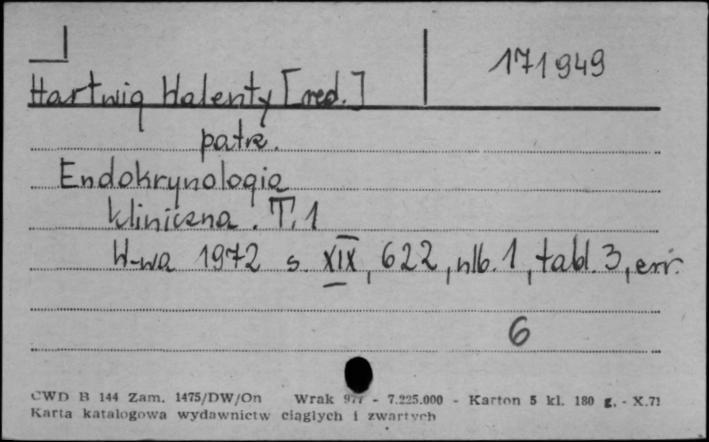 171949
Hartwig Walenty [red.]
patrz.
Endokrynologia
kliniczna. T. 1
W-wa 1972 s. XIX, 622, nlb. 1, tabl. 3, err.
6
CWD B 144 Zam. 1475/DW/On Wrak - 7.225.000 - Karton 5 kl. 180 g. - X.71
Karta katalogowa wydawnictw ciągłych i zwartych